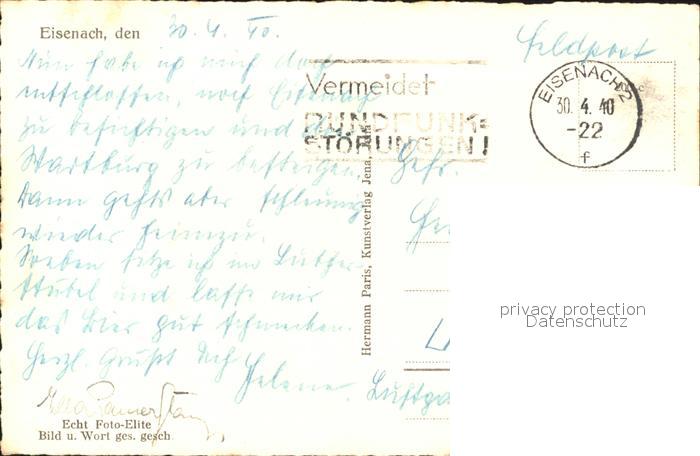 Eisenach, den 30. 4. 40.
Feldpost
Nun habe ich mich doch
entschlossen, noch Eisenach
zu besichtigen und die
Wartburg zu besteigen.
Dann gehts aber schleunig
wieder heimzu.
Soeben sitze ich im Luther-
stübel und lasse mir
das Bier gut schmecken.
Herzl. Grüßt Dich
Helene.
Echt Foto-Elite
Bild u. Wort ges. gesch.
Hermann Paris, Kunstverlag Jena,
Vermeidet
RUNDFUNK=
STÖRUNGEN!
EISENACH 2
30. 4. 40
-22
f
Gefr.
Luftga
privacy protection
Datenschutz